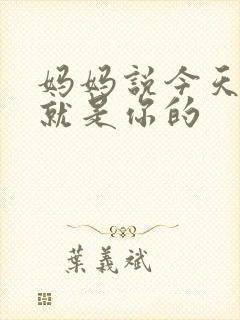 妈妈説今天
就是你的
葉義斌